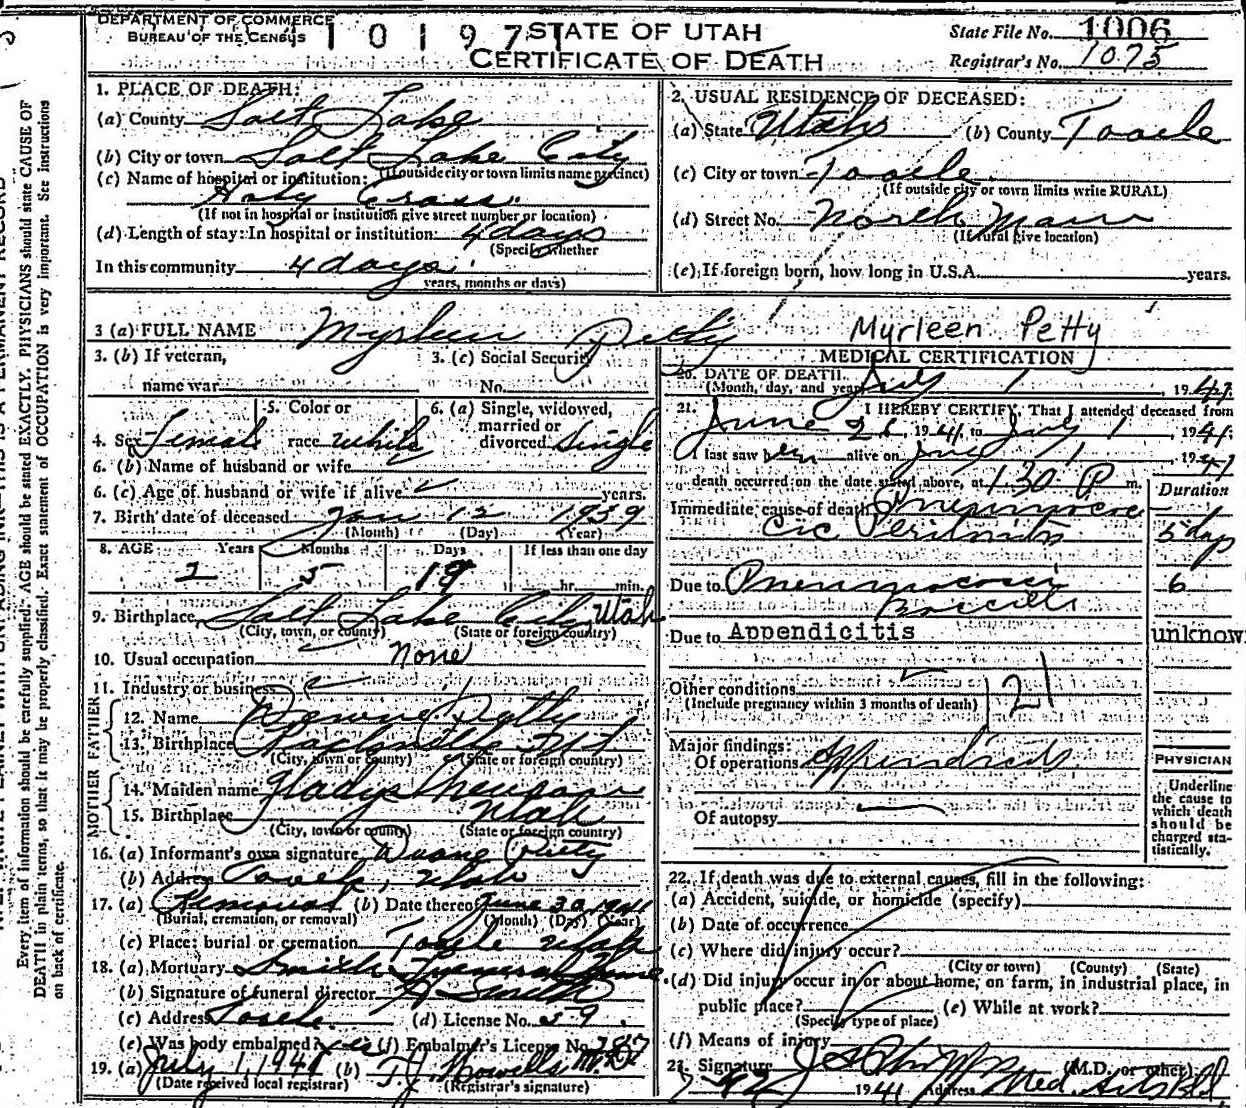 DEPARTMENT OF COMMERCE
BUREAU OF THE CENSUS
10197
STATE OF UTAH
CERTIFICATE OF DEATH
State File No. 1006
Registrar's No. 1075
1. PLACE OF DEATH:
(a) County Salt Lake
(b) City or town Salt Lake City
(If outside city or town limits name precinct)
(c) Name of hospital or institution:
Holy Cross
(If not in hospital or institution give street number or location)
(d) Length of stay: In hospital or institution: 4 days
(Specify whether
In this community 4 days
years, months or days)
2. USUAL RESIDENCE OF DECEASED:
(a) State Utah (b) County Tooele
(c) City or town Tooele
(If outside city or town limits write RURAL)
(d) Street No. North Main
(If rural give location)
(e) If foreign born, how long in U.S.A. years.
3 (a) FULL NAME Myrleen Petty Myrleen Petty
3. (b) If veteran,
name war
3. (c) Social Security
No.
4. Sex Female
5. Color or
race white
6. (a) Single, widowed,
married or
divorced single
6. (b) Name of husband or wife
6. (c) Age of husband or wife if alive years.
7. Birth date of deceased Jan 12 1939
(Month) (Day) (Year)
8. AGE Years Months Days If less than one day
2 5 19 hr. min.
9. Birthplace Salt Lake City Utah
(City, town, or county) (State or foreign country)
10. Usual occupation None
11. Industry or business
FATHER
12. Name Petty
13. Birthplace
(City, town or county) (State or foreign country)
MOTHER
14. Maiden name Gladys
15. Birthplace Utah
(City, town or county) (State or foreign country)
16. (a) Informant's own signature Duane Petty
(b) Address Tooele, Utah
17. (a) Removal (b) Date thereof June 30, 1941
(Burial, cremation, or removal) (Month) (Day) (Year)
(c) Place: burial or cremation Tooele Utah
18. (a) Mortuary Smith Funeral Home
(b) Signature of funeral director Smith
(c) Address Tooele (d) License No. 59
(e) Was body embalmed? yes (f) Embalmer's License No.
19. (a) July 1, 1941 (b) T. J. Howells M.D.
(Date received local registrar) (Registrar's signature)
MEDICAL CERTIFICATION
20. DATE OF DEATH
(Month, day, and year) July 1, 1941
21. I HEREBY CERTIFY, That I attended deceased from
June 28, 1941 to July 1, 1941
I last saw her alive on July 1, 1941
death occurred on the date stated above, at 1:30 P m.
Duration
Immediate cause of death Pneumococ
cic Peritonitis 5 days
Due to Pneumococci 6
Due to Appendicitis unknow
Other conditions
(Include pregnancy within 3 months of death) 121
Major findings:
Of operations Appendicitis
Of autopsy
PHYSICIAN
Underline
the cause to
which death
should be
charged sta-
tistically.
22. If death was due to external causes, fill in the following:
(a) Accident, suicide, or homicide (specify)
(b) Date of occurrence
(c) Where did injury occur?
(City or town) (County) (State)
(d) Did injury occur in or about home, on farm, in industrial place, in
public place? (e) While at work?
(Specify type of place)
(f) Means of injury
23. Signature (M.D. or other)
1941 Address Med. Arts Bld
Every item of information should be carefully supplied. AGE should be stated EXACTLY. PHYSICIANS should state CAUSE OF
DEATH in plain terms, so that it may be properly classified. Exact statement of OCCUPATION is very important. See instructions
on back of certificate.